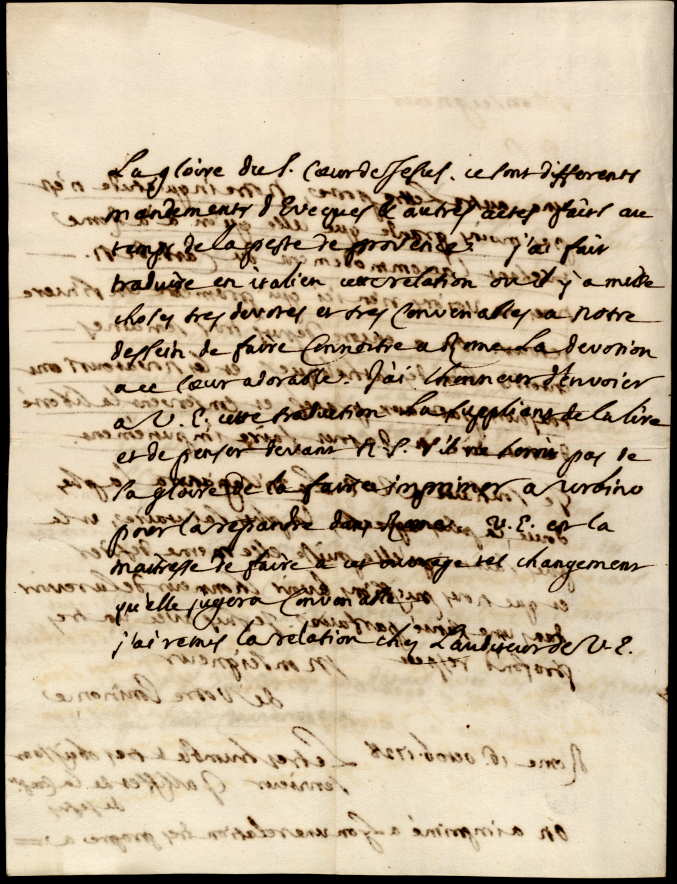 La gloire du S. Cœur de Jesus. ce sont differents
mandements d'Eveques & autres actes faits au
temps de la peste de provence. j'ai fait
traduire en italien cette relation où il y a mille
choses tres devotes et tres convenables a notre
dessein de faire connoitre a Rome La devotion
a ce Cœur adorable. J'ai l'honneur d'Envoier
a V. E. cette traduction La suppliant de la lire
et de penser devant N. S. s'il ne pas de
sa gloire de la faire imprimer a Urbino
pour la repandre dans Rome. V. E. est la
maitresse de faire a cet ouvrage tel changement
qu'elle jugera Convenable
j'ai remis la relation chez L'auditeur de V. E.